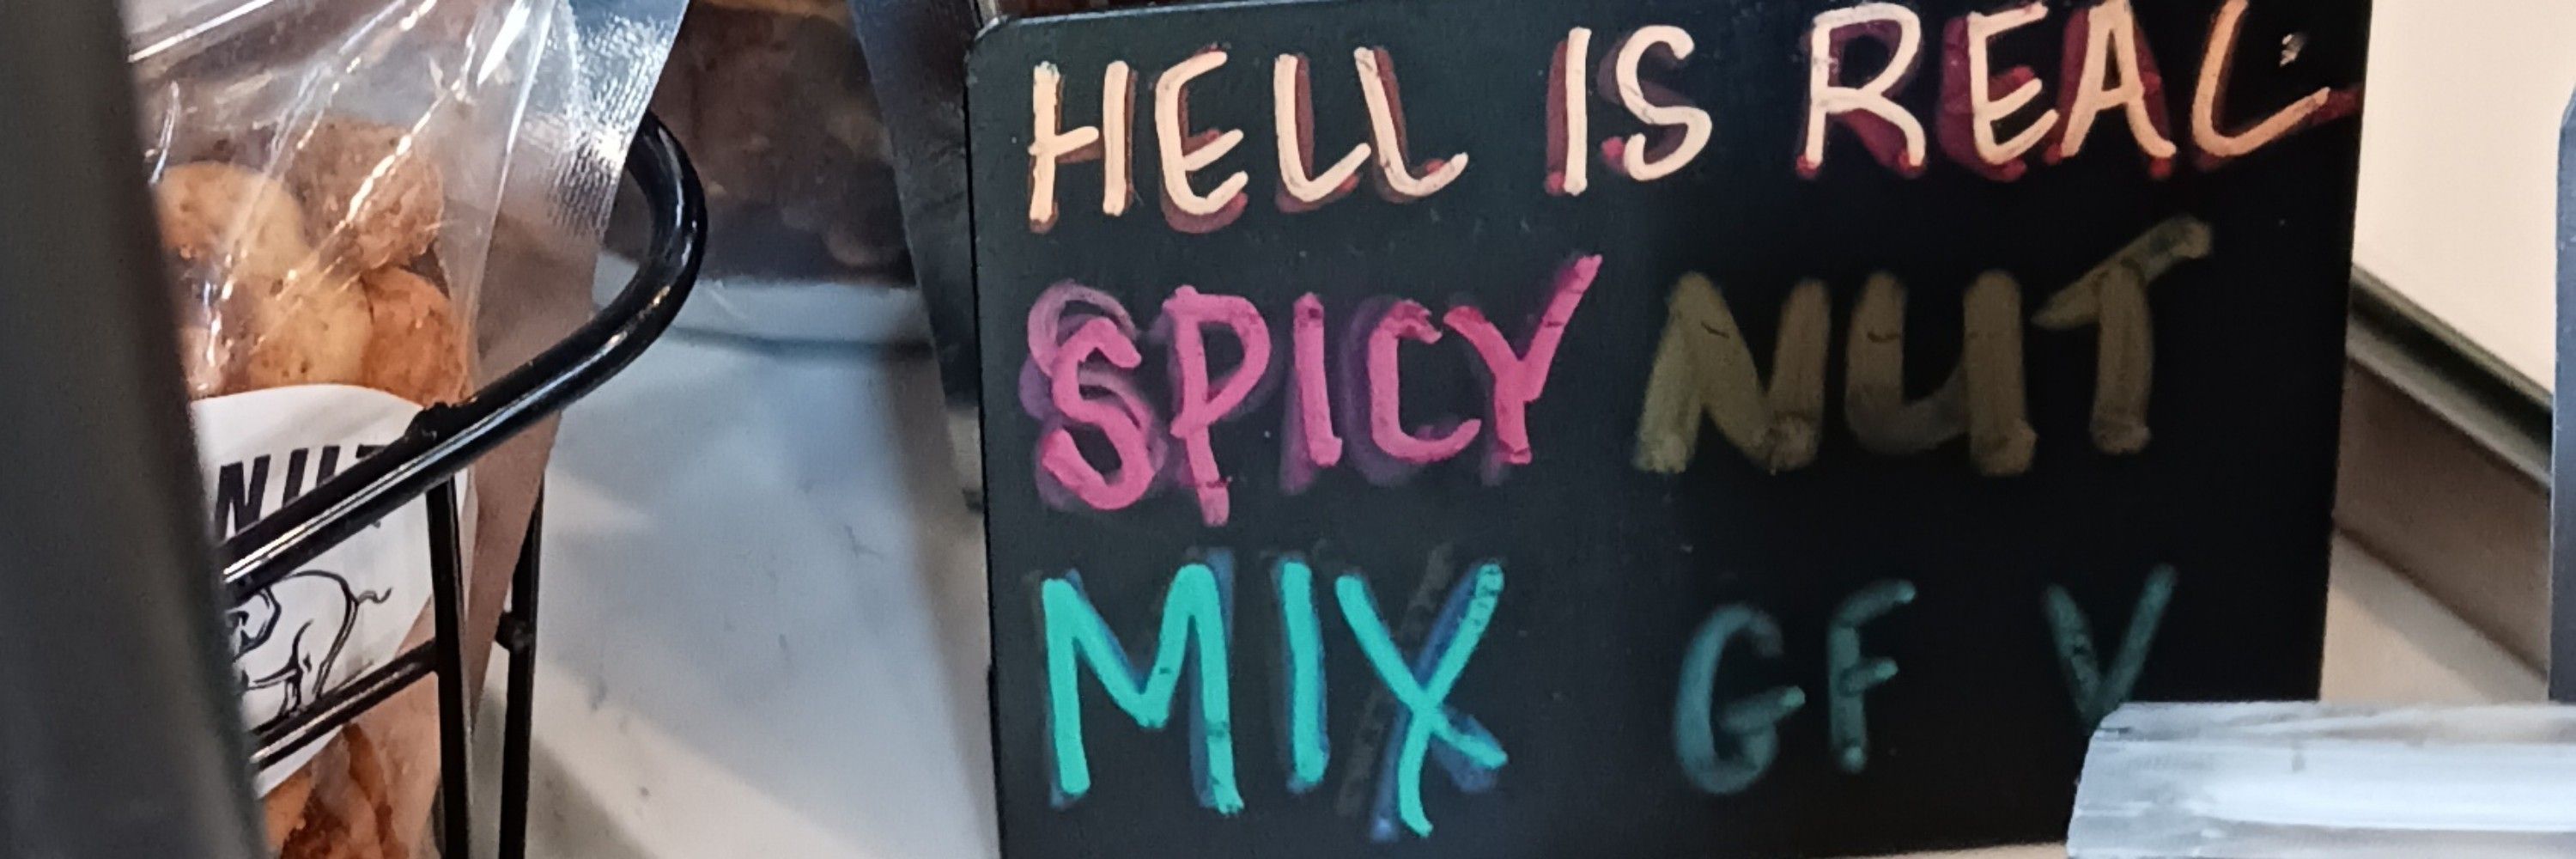 HELL IS REAL
SPICY NUT
MIX GF V
NUT